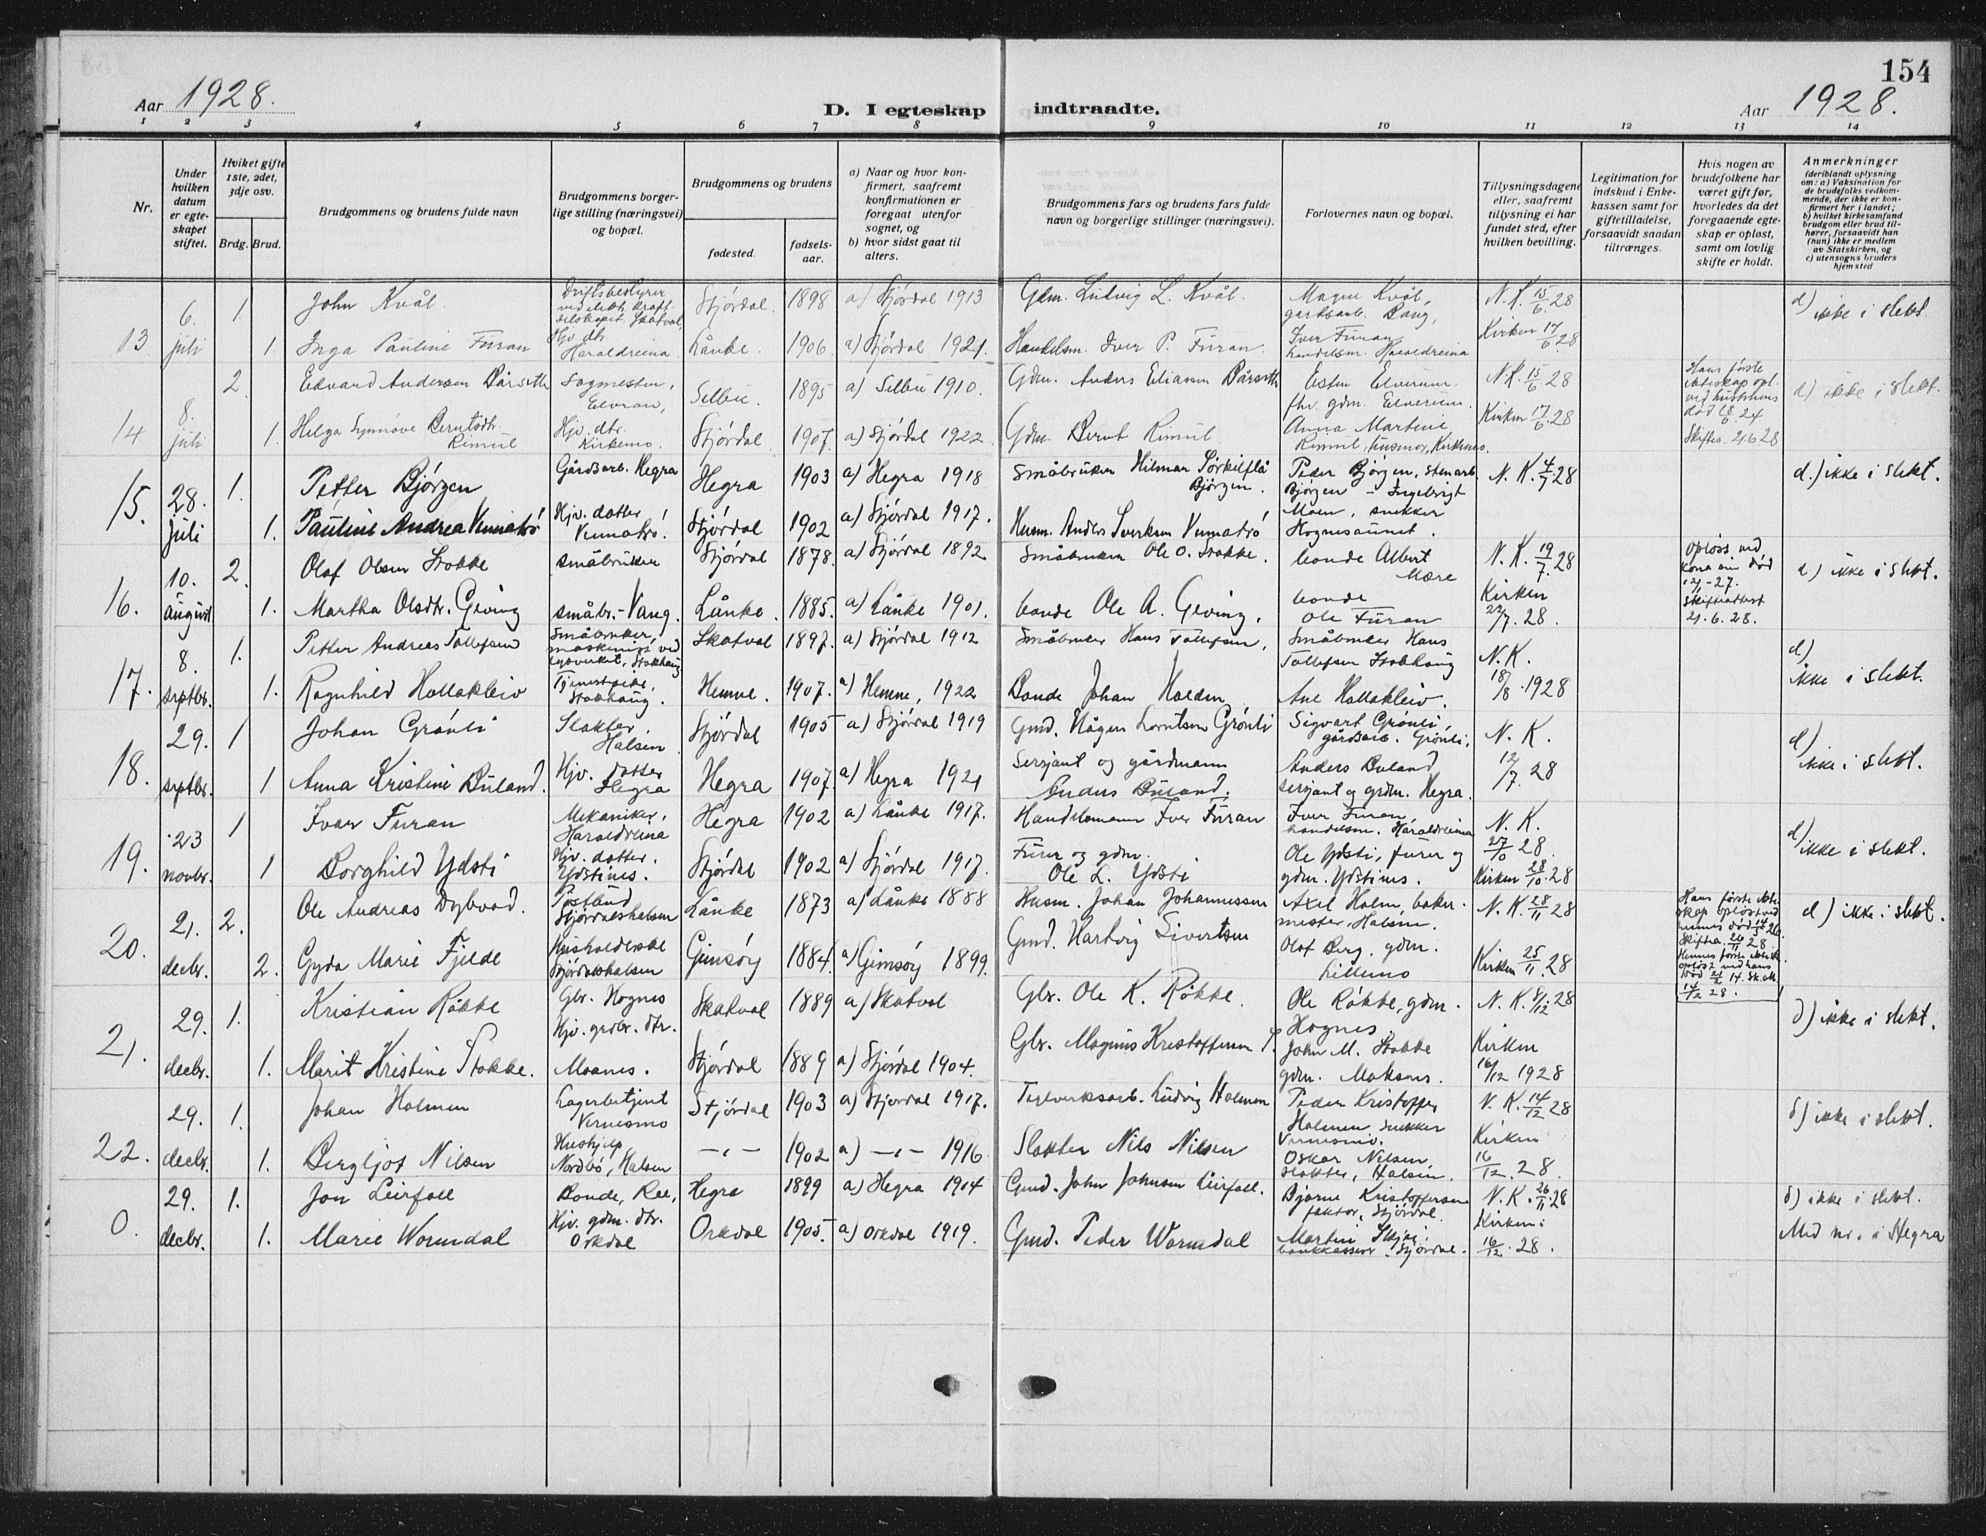 154
Aar 1928.
D. I egteskap indtraadte.
Aar 1928.
1 2 3 4 5 6 7 8 9 10 11 12 13 14
Nr.
Under hvilken datum er egteskapet stiftet.
Hviket gifte 1ste, 2det, 3dje osv.
Brdg. Brud.
Brudgommens og brudens fulde navn
Brudgommens borgerlige stilling (næringsvei) og bopæl.
Brudgommens og brudens
fødested.
fødselsaar.
a) Naar og hvor konfirmert, saafremt konfirmationen er foregaat utenfor sognet, og
b) hvor sidst gaat til alters.
Brudgommens fars og brudens fars fulde navn og borgerlige stillinger (næringsvei).
Forlovernes navn og bopæl.
Tillysningsdagene eller, saafremt tillysning ei har fundet sted, efter hvilken bevilling.
Legitimation for indskud i Enkekassen samt for giftetilladelse, forsaavidt saadan tiltrænges.
Hvis nogen av brudefolkene har været gift før, hvorledes da det foregaaende egteskap er opløst, samt om lovlig skifte er holdt.
Anmerkninger
(deriblandt oplysning om: a) Vaksination for de brudefolks vedkommende, der ikke er konfirmert her i landet; b) hvilket kirkesamfund brudgom eller brud tilhører, forsaavidt han (hun) ikke er medlem av Statskirken, og c) utensogns bruders hjemsted
13 6. juli 1 John Kvål. Driftsbestyrer Stjørdal. 1898 a) Stjørdal 1913 Gdm. Ludvig L. Kvål. Magne Kvål, gårdsarb. Vang, N.K. 15/6 28 d) ikke i slekt
1. Inga Pauline Furan Hjv. dtr. Haraldreina Lånke. 1906 a) Stjørdal 1921. Handelsm. Iver P. Furan. Iver Furan handelsm. Haraldreina Kirken 17/6 28
14 8. juli 2 Edvard Andersen Bårseth sagmester, Elvran, Selbu. 1895 a) Selbu 1910. Gdm. Anders Eliassen Bårseth Esten Elverum fhv. gdm. Elverum. N.K. 15/6 28 Hans første ekteskap opl. ved hustruens død 24 Skiftea. 21 6 28 d) ikke i slekt.
1. Helga Synnøve Berntsdtr. Rimul Hjv. dtr. Kirkemo. Stjørdal 1907. a) Stjørdal 1922 Gdm. Bernt Rimul Anna Martine Rimul, husmor, Kirkemo. Kirken 17/6 28
15. 28. juli 1. Petter Bjørgen Gårdsarb. Hegra Hegra 1903 a) Hegra 1918 Småbruker Hilmar Bjørgen. Peder Bjørgen, stenarb. Bjørgen - Ingebrigt N.K. 4/7 28 d.) ikke i slekt.
1. Pauline Andrea Vennatrø Hjv. datter Vennatrø. Stjørdal 1902 a) Stjørdal 1917. Husm. Anders Vennatrø Moen, snekker Hognesaunet.
16. 10. august 2. Olaf Olsen Stokke småbruker Stjørdal 1878. a) Stjørdal 1892 Småbruker Ole O. Stokke. bonde Albert Mære N.K. 19/7 28 Opløst ved kona sin død -27. Skifteattest 21. 6. 28. d) ikke i slekt.
1. Martha Olsdtr. Geving småbr. - Vang. Lånke. 1885. a) Lånke 1901. bonde Ole A. Geving. bonde Ole Furan Kirken 22/7. 28.
17. 8. septbr. 1. Petter Andreas Tollefsen Småbruker, maskinist ved lysverket, Stokhaug Skatval 1897. a) Stjørdal 1912 Småbruker Hans Tollefsen, Småbruker Hans Tollefsen Stokhaug N.K. d) ikke i slekt.
1. Ragnhild Hollakleiv Tjenestpike, Stokhaug. Hemne. 1907. a) Hemne, 1922 Bonde Johan Ane Hollakleiv. 18/8 1928
18. 29. septbr. 1 Johan Grønli Slakter Halsen Stjørdal 1905 a) Stjørdal 1919 Gmd. Hågen Lorntsen Grønli Sigvart Grønli, gårdsarb. Grønli, N.K. d) ikke i slekt.
1 Anna Kristine Buland. Hjv. datter Hegra Hegra 1907. a) Hegra 1921 Sersjant og gårdmann Anders Buland. Anders Buland sersjant og grdm. Hegra. 12/7. 28
19. 23 novbr. 1 Ivar Furan Mekaniker, Haraldreina Hegra 1902 a) Lånke 1917. Handelsmann Iver Furan Iver Furan, handelsm. Haraldreina N.K. 27/10 28. d) ikke i slekt.
1 Borghild Ydsti Hjv. datter. Ydstines. Stjørdal 1902 a) Stjørdal 1917. Furer og gdm. Ole L. Ydsti Ole Ydsti, furer og gdm. Ydstines. Kirken 28/10 28
20. 21. decbr. 2. Ole Andreas Dybvad. Postbud Stjørdalshalsen Lånke 1873 a) Lånke 1888 Husm. Johan Johannessen Axel Holm, bakermester, Halsen. N.K. 28/11 28 Hans første ekteskap opløst ved hennes død Skiftea. 28 Hennes første ekt. opløst ved hans død 14. 14/12 28. d) ikke i slekt.
2. Gyda Marie Fjelde Husholderske Stjørdalshalsen Gimsøy 1884. a) Gimsøy 1899. Gmd. Hartvig Sivertsen Olaf Berg, gdm. Lillemo Kirken 25/11. 28
21. 29. decbr. 1. Kristian Røkke Gbr. Hognes Skatval 1889 a) Skatval Gbr. Ole K. Røkke. Ole Røkke, gdm. Hognes. N.K. 8/12 28 d) ikke i slekt.
1. Marit Kristine Stokke. Hjv. grdbr. dtr. Moanes. Stjørdal 1889 a) Stjørdal 1904. Gbr. Magnus Kristoffersen S. John M. Stokke gdm. Moksnes. Kirken 16/12 1928
22. 29. decbr. 1. Johan Holmen Lagerbetjent Vernesmo Stjørdal 1903 a) Stjørdal 1917. Teglverksarb. Ludvig Holmen Peder Kristoffer Holmen, snekker Vernesmo. N.K. 14/12 28 d) ikke i slekt.
1. Bergljot Nilsen Hushjelp Nordbø, Halsen -"- 1902 a) -"- 1916 Slakter Nils Nilsen Oskar Nilsen slakter, Halsen. Kirken 16/12. 28.
0. 29. decbr. 1. Jon Leirfall Bonde, Ree, Hegra 1899 a) Hegra 1914 Gmd. John Johnsen Leirfall. Bjarne Kristoffersen faktor, Stjørdal. N.K. 26/11 28 d) ikke i slekt.
1. Marie Wormdal Hjv. gdm. dtr. Orkdal Orkdal 1905. a) Orkdal 1919. Gmd. Peder Wormdal Martin Skjei bankkasserer Stjørdal. Kirken: 16/12. 28. Med nr. i Hegra